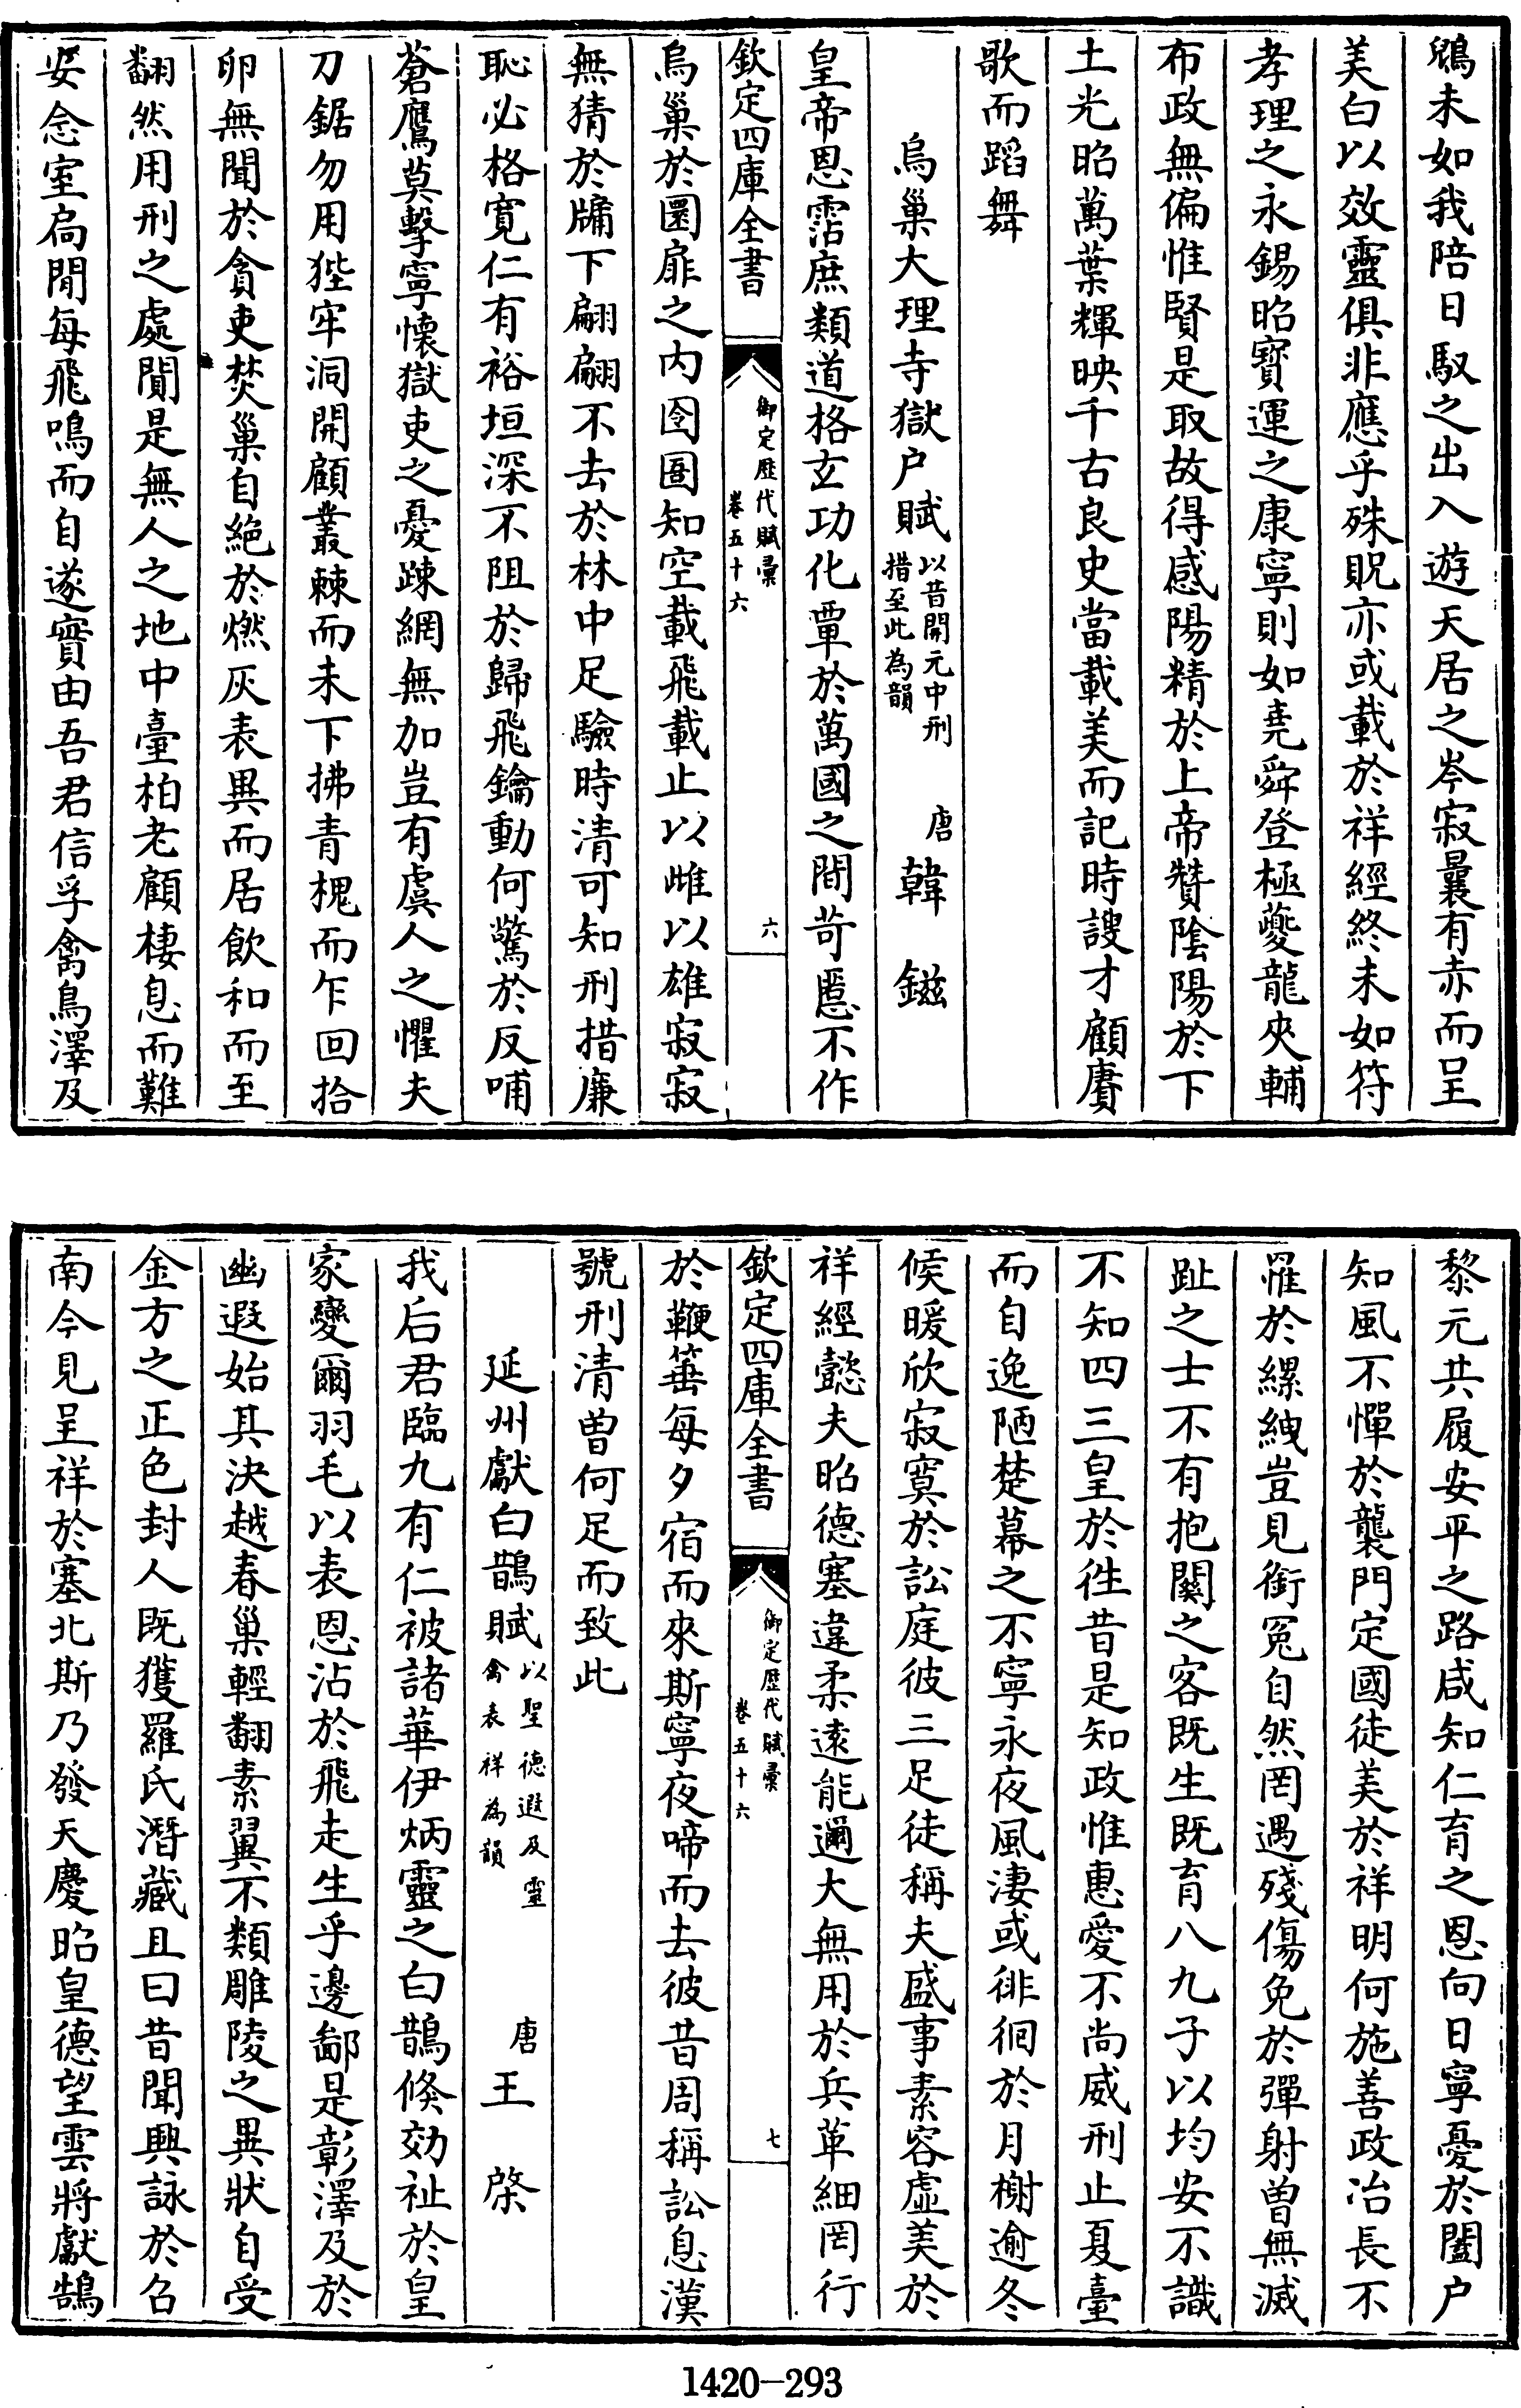 鵷未如我陪日馭之出入遊天居之岑寂曩有赤而呈
美白以效靈俱非應乎殊貺亦或載於祥經終未如符
孝理之永錫昭寳運之康寧則如堯舜登極夔龍夾輔
布政無偏惟賢是取故得感陽精於上帝贊陰陽於下
土光昭萬葉輝映千古良史當載美而記時謏才顧賡
歌而蹈舞
烏巢大理寺獄户賦以昔開元中刑措至此為韻 唐 韓鎡
皇帝恩霑庶類道格玄功化覃於萬國之間苛慝不作
欽定四庫全書 御定歷代賦彙 卷五十六 六
烏巢於圜扉之内囹圄知空載飛載止以雌以雄寂寂
無猜於牖下翩翩不去於林中足驗時清可知刑措廉
恥必格寛仁有裕垣深不阻於歸飛鑰動何驚於反哺
蒼鷹莫擊寧懷獄吏之憂踈網無加豈有虞人之懼夫
刀鋸勿用狴牢洞開顧叢棘而未下拂青槐而乍回拾
卵無聞於貪吏焚巢自絶於燃灰表異而居飲和而至
翻然用刑之處閴是無人之地中臺柏老顧棲息而難
安念室扃閒每飛鳴而自遂實由吾君信孚禽鳥澤及
黎元共履安平之路咸知仁育之恩向日寧憂於闔户
知風不憚於襲門定國徒美於祥明何施善政冶長不
罹於縲絏豈見銜冤自然罔遇殘傷免於彈射曽無滅
趾之士不有抱關之客既生既育八九子以均安不識
不知四三皇於徃昔是知政惟惠愛不尚威刑止夏臺
而自逸陋楚幕之不寧永夜風淒或徘徊於月榭逾冬
候暖欣寂寞於訟庭彼三足徒稱夫盛事素容虚美於
祥經懿夫昭德塞違柔逺能邇大無用於兵革細罔行
欽定四庫全書 御定歷代賦彙 卷五十六 七
於鞭箠每夕宿而來斯寧夜啼而去彼昔周稱訟息漢
號刑清曽何足而致此
延州獻白鵲賦以聖德遐及靈禽表祥為韻 唐 王棨
我后君臨九有仁被諸華伊炳靈之白鵲倐効祉於皇
家變爾羽毛以表恩沾於飛走生乎邊鄙是彰澤及於
幽遐始其決越春巢輕翻素翼不類雕陵之異狀自受
金方之正色封人既獲羅氏潛藏且曰昔聞興詠於召
南今見呈祥於塞北斯乃發天慶昭皇德望雲將獻鵠
1420-293